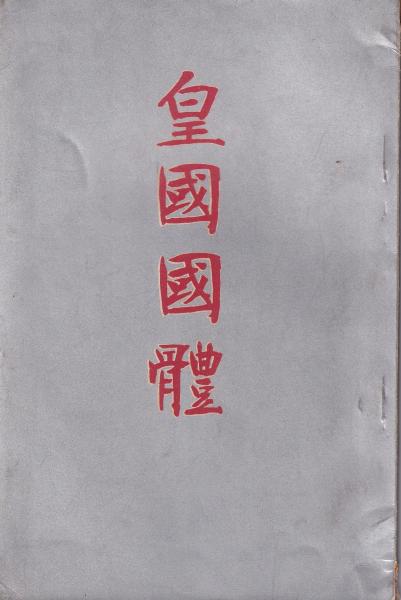 皇國國體